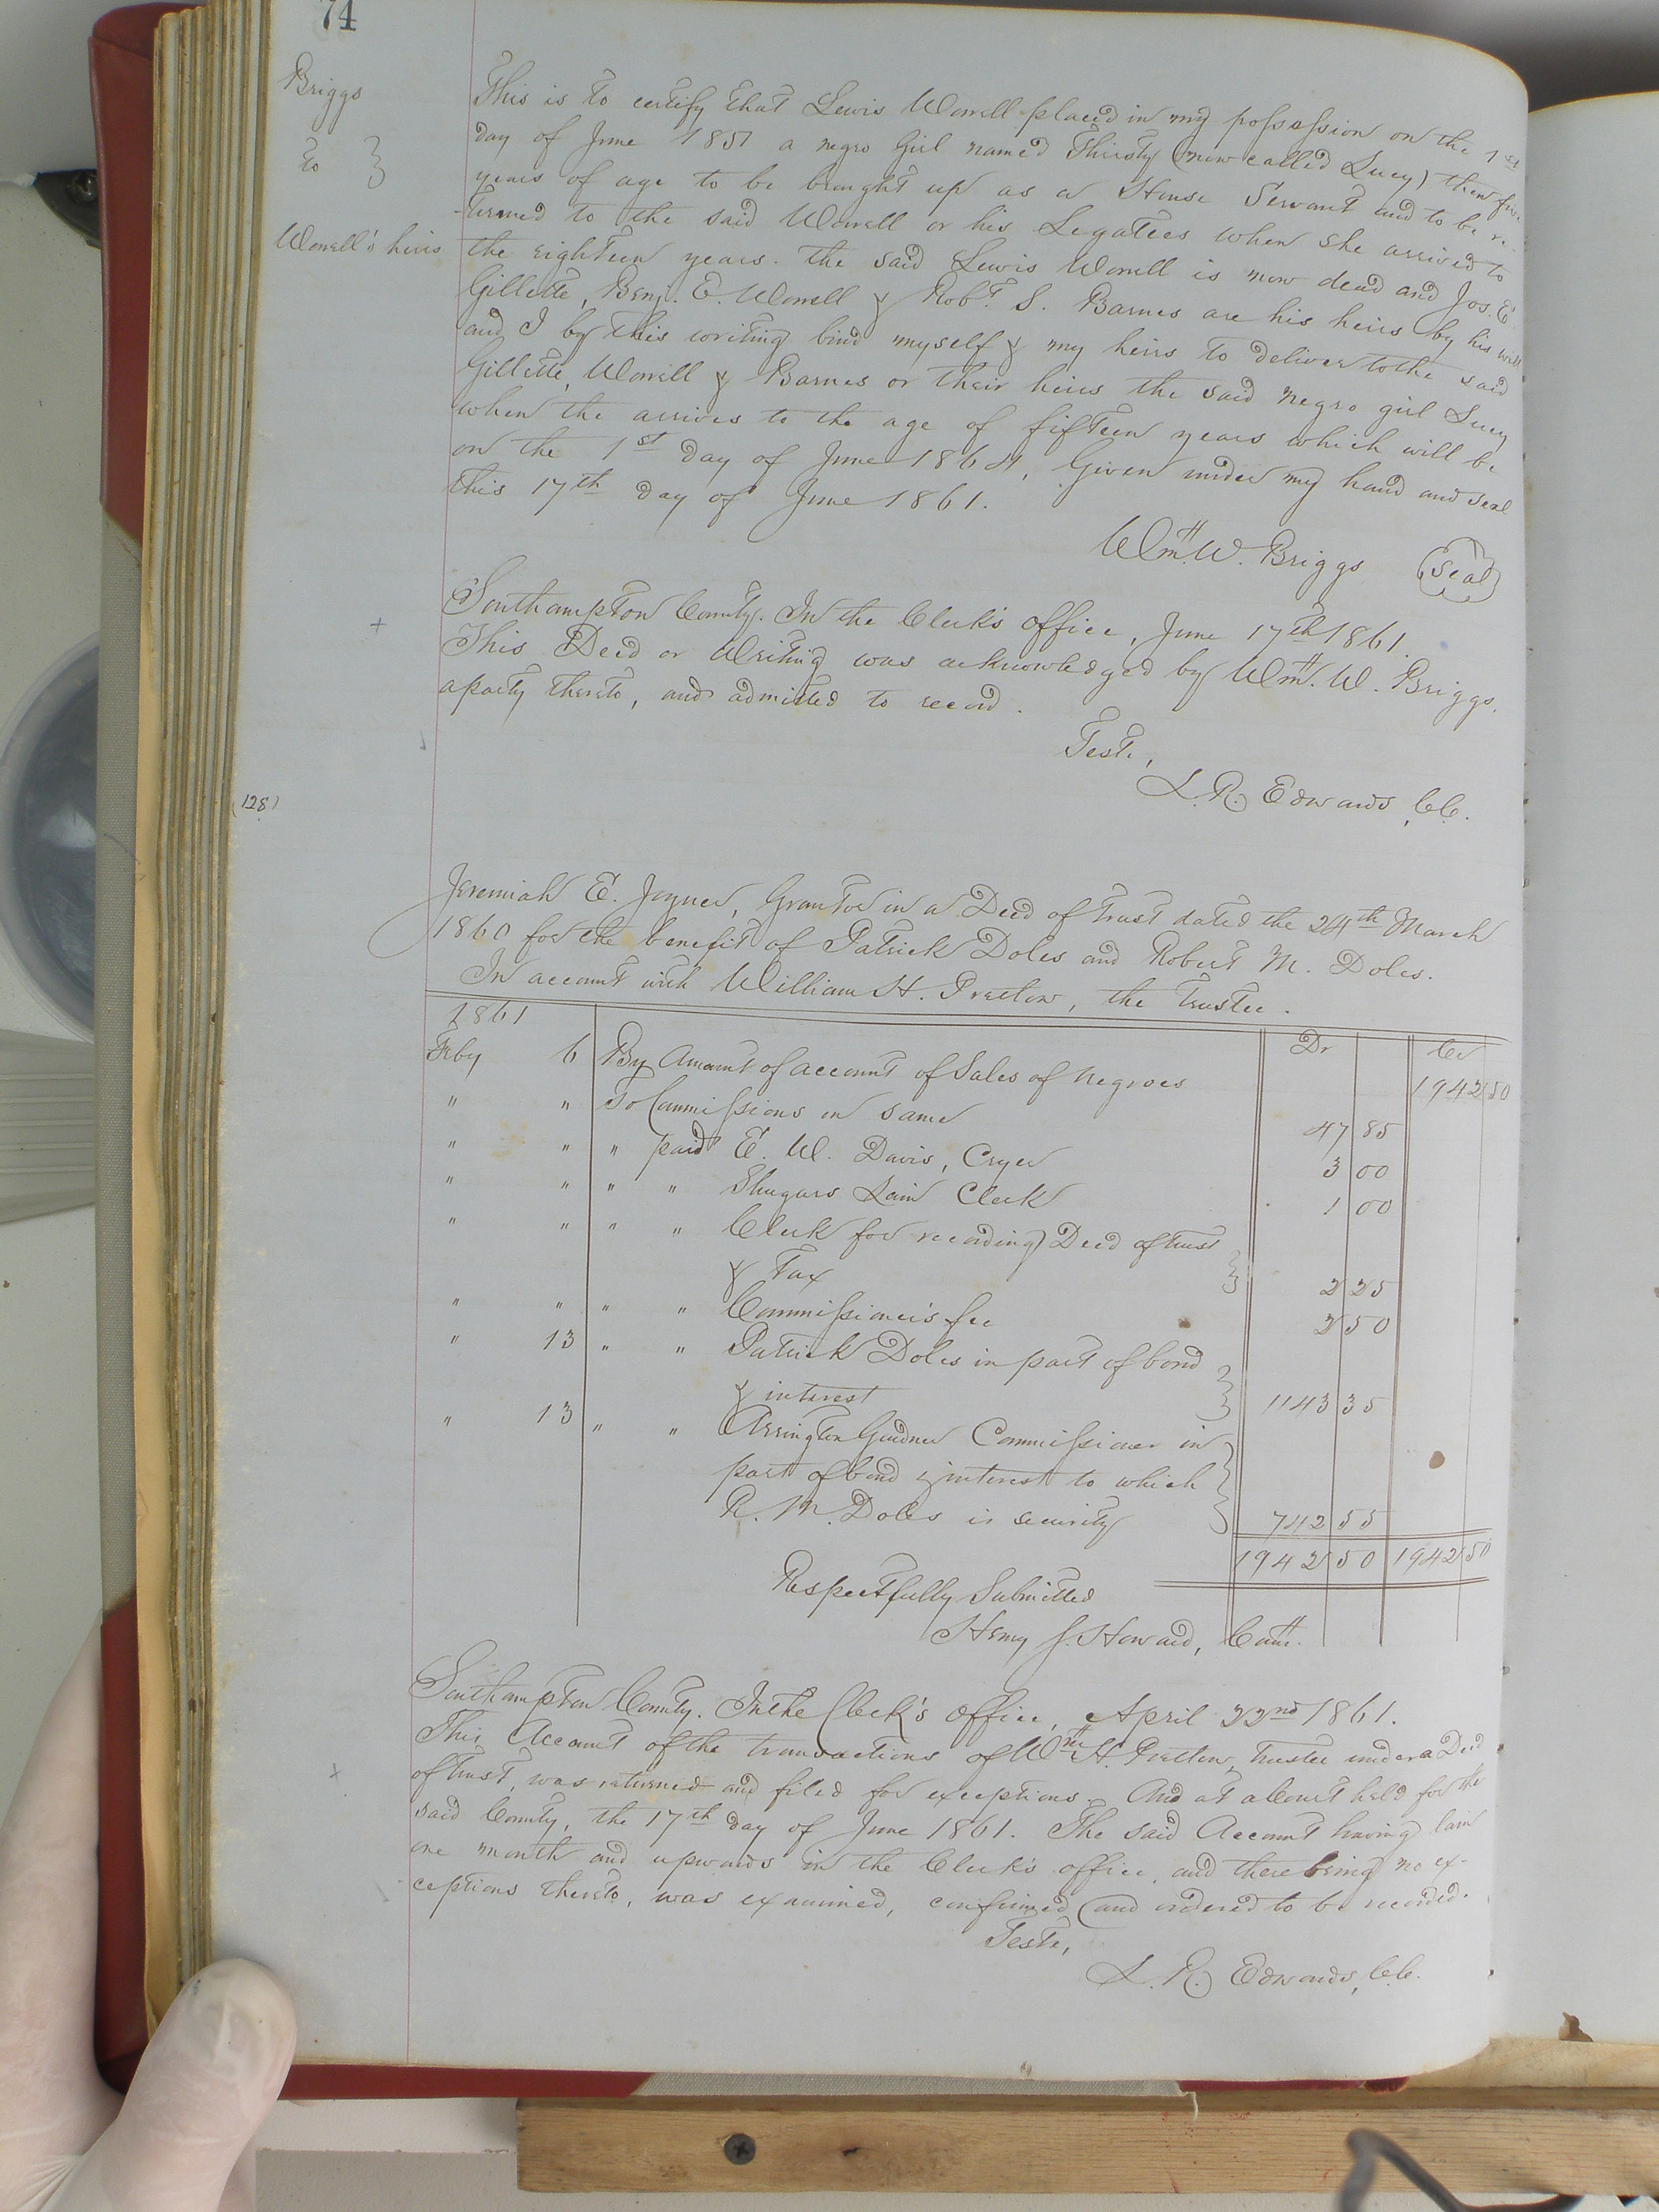 74
Briggs
to }
Worrell's heirs
This is to certify that Lewis Worrell placed in my possession on the 1st
day of June 1851 a negro Girl named Thirsty (now called Lucy) then five
years of age to be brought up as a House Servant and to be re-
turned to the said Worrell or his Legatees when she arrived to
the eighteen years. the said Lewis Worrell is now dead and Jos. E.
Gillette, Benj. E. Worrell & Robt. S. Barnes are his heirs by his will
and I by this writing bind myself & my heirs to deliver to the said
Gillette, Worrell & Barnes or their heirs the said negro girl Lucy
when she arrives to the age of fifteen years which will be
on the 1st day of June 1864, Given under my hand and seal
this 17th day of June 1861.
Wm. W. Briggs (Seal)
Southampton County. In the Clerk's office, June 17th 1861.
This Deed or Writing was acknowledged by Wm. W. Briggs,
a party thereto, and admitted to record.
Teste,
L. R. Edwards, C.C.
(128)
Jeremiah E. Joyner, Grantor in a Deed of Trust dated the 24th March
1860 for the benefit of Patrick Doles and Robert M. Doles.
In account with William H. Pretlow, the Trustee.
1861 Dr Cr
Feby 6 By Amount of account of Sales of Negroes 1942 50
" " To Commissions on same 47 85
" " " paid E. W. Davis, Cryer 3 00
" " " " Shugars Lain Clerk 1 00
" " " " Clerk for recording Deed of trust
& Tax } 2 25
" " " " Commissioner's fee 2 50
" 13 " " Patrick Doles in part of bond
& interest } 1143 35
" 13 " " Arrington Gardner Commissioner in
part of bond & interest to which
R. M. Doles is security } 742 55
1942 50 1942 50
Respectfully Submitted
Henry J. Howard, Comr.
Southampton County. In the Clerk's office, April 22nd 1861.
This Account of the transactions of Wm. H. Pretlow, trustee under a Deed
of trust, was returned and filed for exceptions. And at a Court held for the
said County, the 17th day of June 1861. The said Account having lain
one month and upwards in the Clerk's office, and there being no ex-
ceptions thereto, was examined, confirmed and ordered to be recorded.
Teste,
L. R. Edwards, C.C.